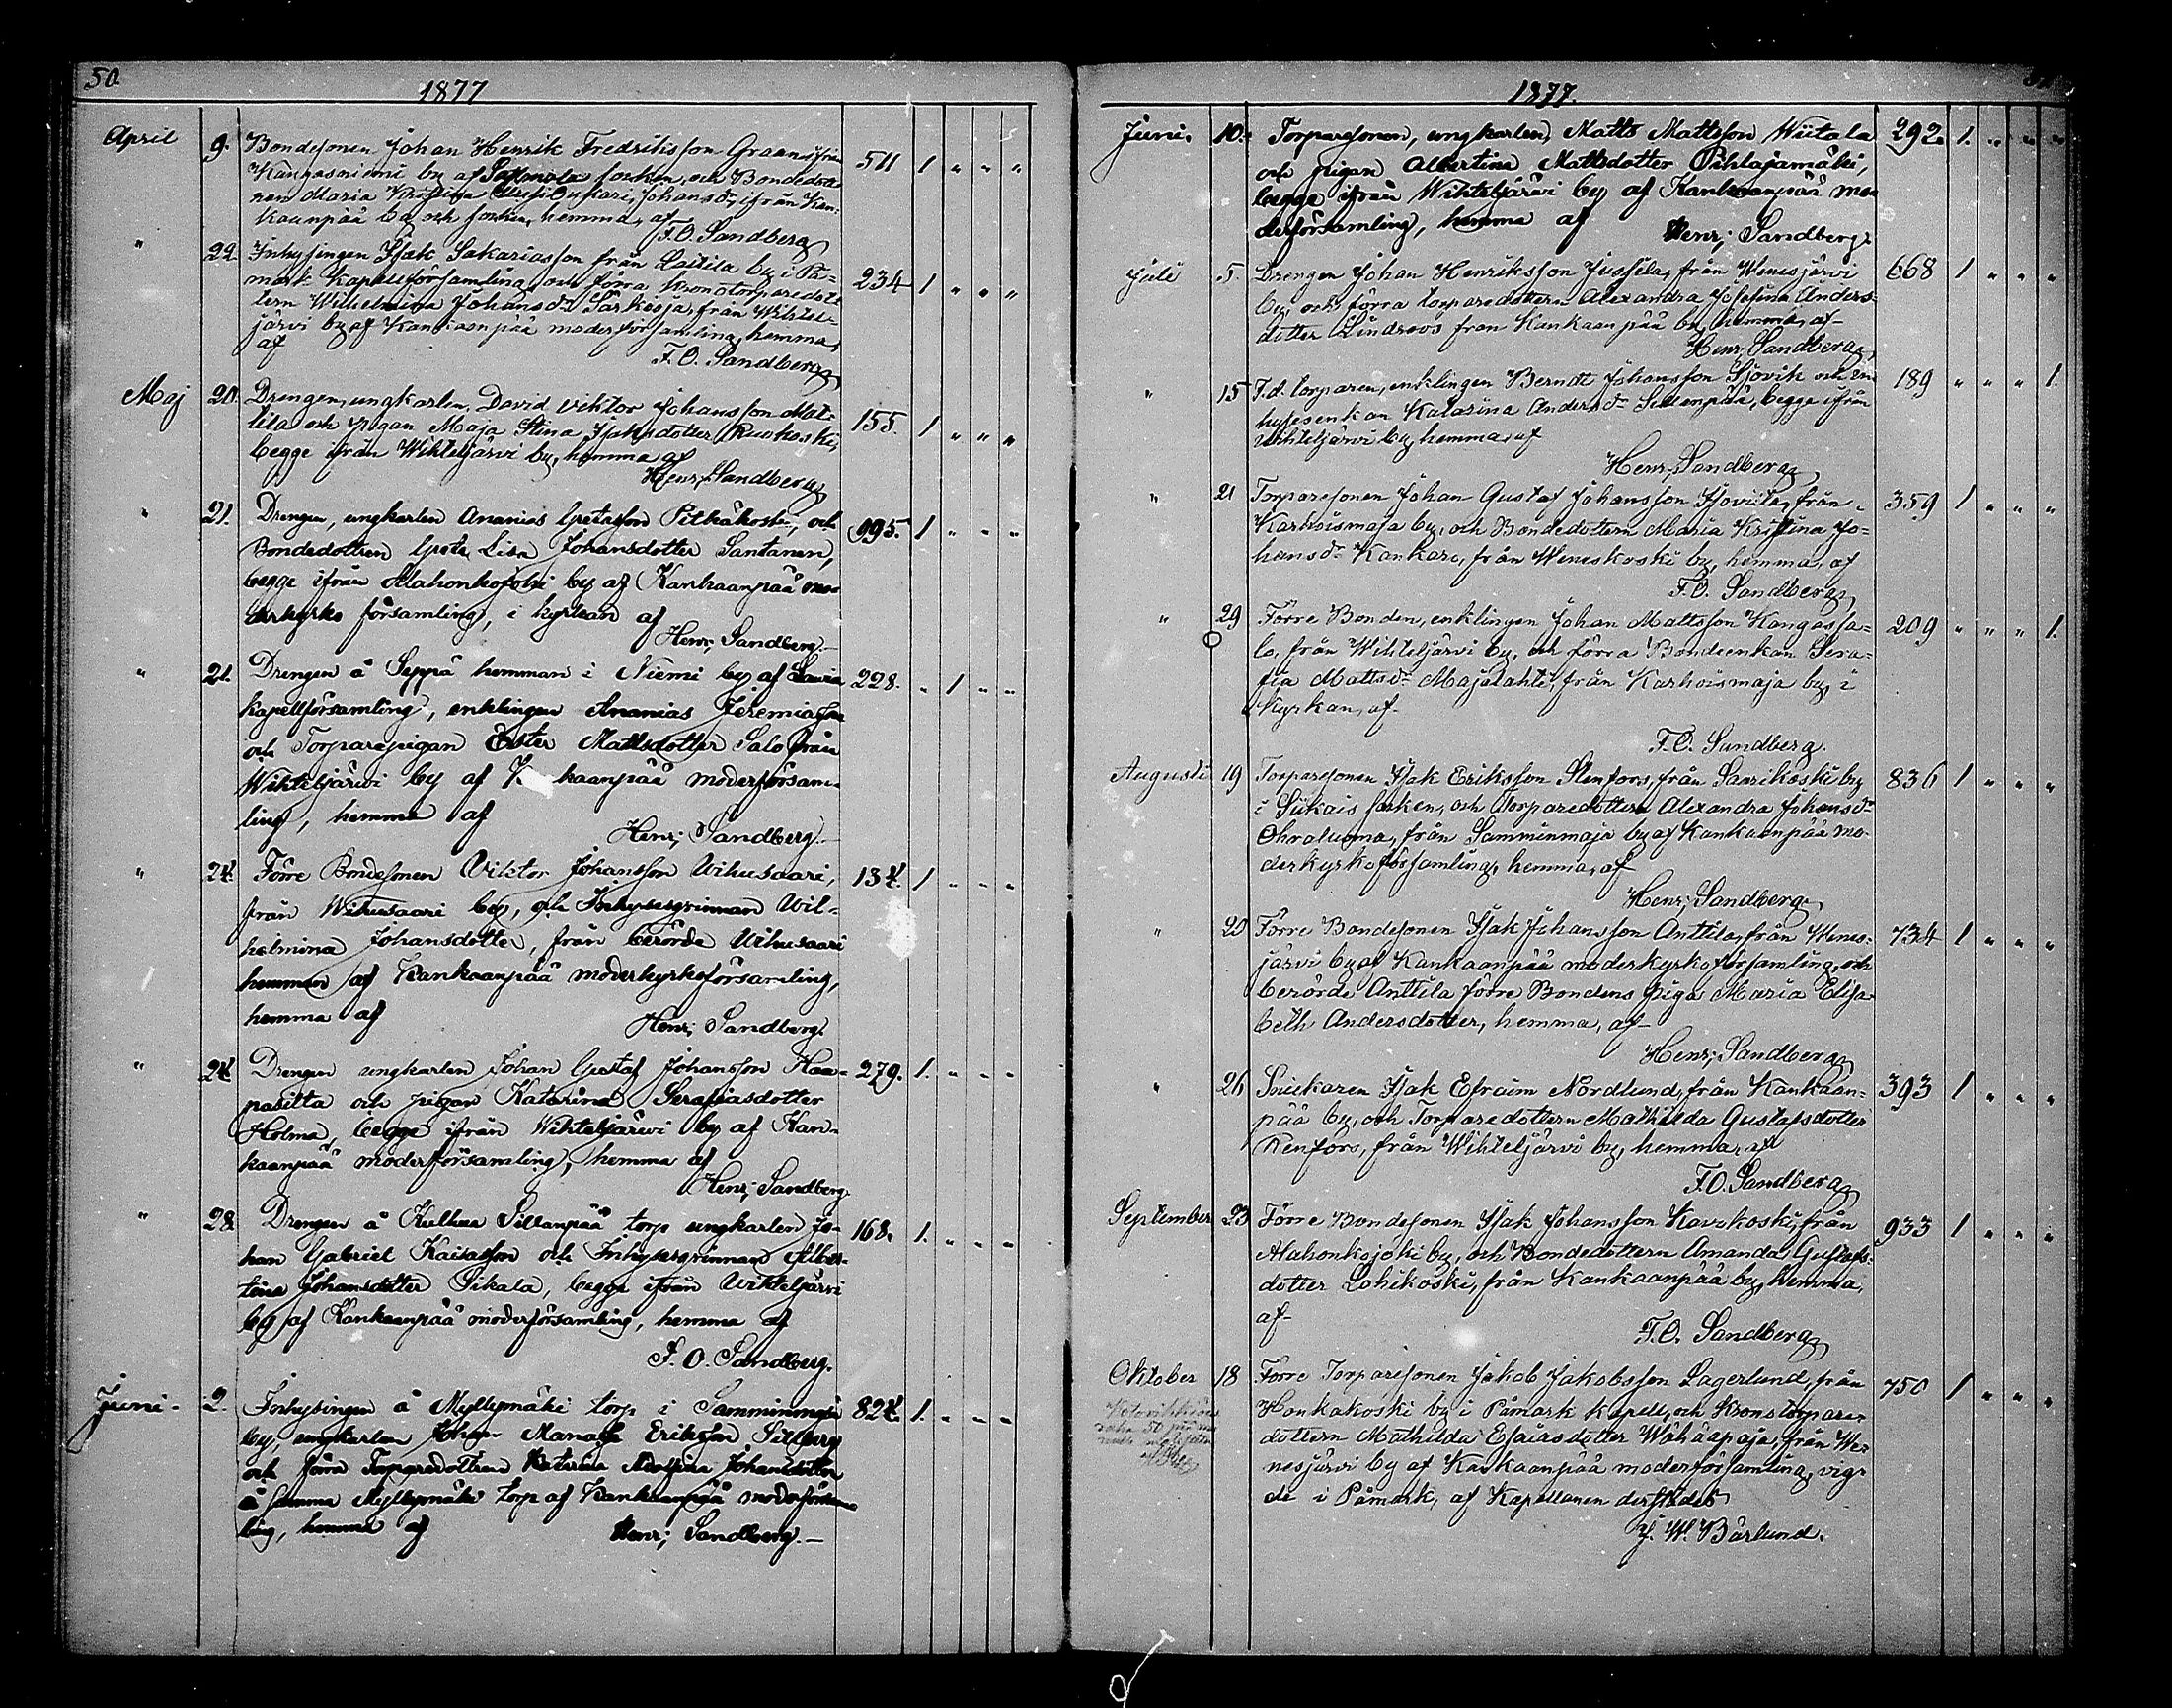 50.
1877
April 9. Bondesonen Johan Henrik Fredriksson Graans från 511 1 " " "
Kangasniemi by af socken, och Bondedott
nen Maria Kristina Johansdr ifrån Kan-
kaanpää by och socken, hemma, af
F. O. Sandberg
" 22. Inhysingen Isak Sakariasson från Laitila by i På- 234 1 " " "
mark Kapellförsamling, och förra kronotorparedott
tern Wilhelmina Johansdr Särkioja, från Wihtel-
järvi by af Kankaanpää moderförsamling, hemma,
af
F. O. Sandberg
Maj 20. Drengen, ungkarlen, David Viktor Johansson Mat- 155. 1 " " "
tila och pigan Maja Stina Isaksdotter Ruokoski,
begge ifrån Wihteljärvi by, hemma af
Henr; Sandberg
" 21. Drengen, ungkarlen Ananias Gretasson Pitkäkoski, och 995. 1 " " "
Bondedottren Greta Lisa Johansdotter Santanen,
begge ifrån Alahonkajoki by af Kankaanpää mo-
derkyrko församling, i kyrkan af
Henr; Sandberg.—
" 21. Drengen å Seppä hemman i Niemi by af Lavia 228. " 1 " "
kapellförsamling, enklingen Ananias Jeremiasson
och Torparepigan Ester Mattsdotter Salo från
Wihteljärvi by af K kaanpää moderförsam-
ling, hemma af
Henr; Sandberg.—
" 24. Förre Bondesonen Viktor Johansson Wihusaari, 134. 1 " " "
från Wihusaari by, och Inhysesqvinnan Wil-
helmina Johansdotter, från berörde Wihusaari
hemman af Kankaanpää moderkyrkoförsamling,
hemma af
Henr; Sandberg.
" 24. Drengen ungkarlen Johan Gustaf Johansson Haa- 279. 1. " " "
pasilta och pigan Katarina Serafiasdotter
Holma, begge ifrån Wihteljärvi by af Kan-
kaanpää moderförsamling, hemma af
Henr; Sandberg.
" 28. Drengen å Sillanpää torp ungkarlen Jo- 168. 1. " " "
han Gabriel Kaisasson och Inhysesqvinnan Alber-
tina Johansdotter Sikala, begge ifrån Wihteljärvi
by af Kankaanpää moderförsamling, hemma af
F. O. Sandberg.
Juni. 2. Inhysingen å Myllymäki torp i Samminmaja 824. 1. " " "
by, ungkarlen Johan Manasse Eriksson Sillberg
och förra Torparedottren Katarina Johansdotter
å samma Myllymäki torp af Kankaanpää moderförsam
ling, hemma af Henr; Sandberg.—
1877.
Juni. 10. Torparesonen, ungkarlen, Matts Mattsson Wiitala 292. 1. " " "
och pigan Albertina Mattsdotter Pihlajamäki,
begge ifrån Wihteljärvi by af Kankaanpää mo-
derförsamling, hemma af Henr; Sandberg.
Juli 5. Drengen Johan Henriksson Jussila, från Wenesjärvi 668 1 " " "
by, och förra torparedottern Alexandra Josefina Anders-
dotter Lindroos från Kankaanpää by, hemma, af
Henr; Sandberg
" 15 F.d. torparen, enklingen Berndt Johansson Sjövik och in- 189 " " " 1.
hysesenkan Katarina Andersdr Sillanpää, begge ifrån
Wihteljärvi by, hemma, af
Henr; Sandberg
" 21 Torparesonen Johan Gustaf Johansson från 359 1 " " "
Karhoismaja by, och Bondedottern Maria Kristina Jo-
hansdr Kankare, från Weneskoski by, hemma, af
F. O. Sandberg
" 29 Förre Bonden, enklingen Johan Mattsson Kangassa- 209 " " " 1.
lo, från Wihteljärvi by, och förra Bondeenkan Sera-
fia Mattsdr Majalahti, från Karhoismaja by, i
Kyrkan, af
F. O. Sandberg.
Augusti 19 Torparesonen Isak Eriksson Stenfors, från Saarikoski by 836 1 " " "
i Siikais socken, och Torparedottern Alexandra Johansdr
Ohraluoma, från Samminmaja by af Kankaanpää mo-
derkyrkoförsamling, hemma, af
Henr; Sandberg
" 20 Förre Bondesonen Isak Johansson Anttila, från Wenes- 734 1 " " "
järvi by, af Kankaanpää moderkyrkoförsamling, och
berörde Anttila förre Bondens piga Maria Elisa-
beth Andersdotter, hemma, af
Henr; Sandberg
" 26 Snickaren Isak Efraim Nordlund, från Kankaan- 393 1 " " "
pää by, och Torparedottern Mathilda Gustafsdotter
Renfors, från Wihteljärvi by, hemma, af
F. O. Sandberg
September 23 Förre Bondesonen Isak Johansson från 933 1 " " "
Alahonkajoki by, och Bondedottern Amanda Gustafs-
dotter Lohikoski, från Kankaanpää by, hemma,
af
F. O. Sandberg
Oktober 18 Förre Torparesonen Jakob Jakobsson Lagerlund, från 750 1 " " "
Honkakoski by i Påmark kapell, och Kronotorpare-
dottern Mathilda Esaiasdotter Wähäapaja, från We-
nesjärvi by af Kankaanpää moderförsamling, vig-
de i Påmark, af Kapellanen derstädes
J. W. Bärlund.